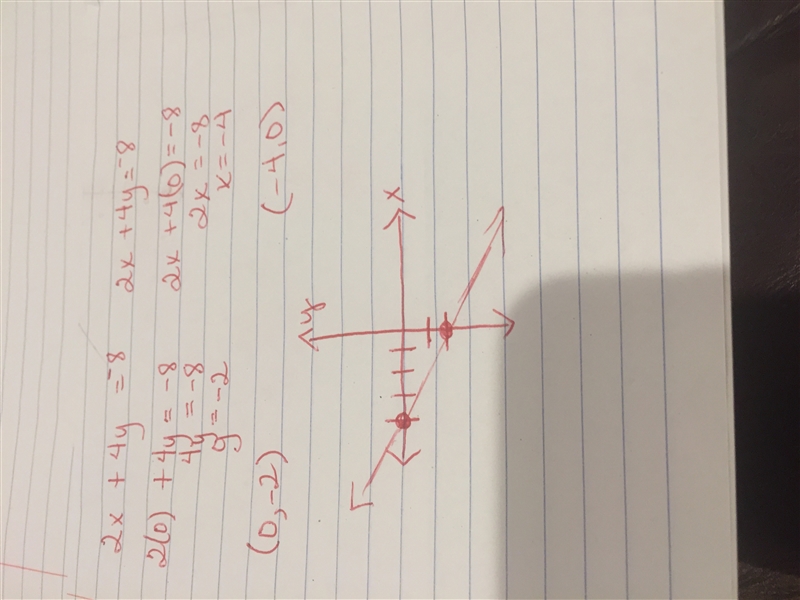 2x + 4y = -8    2x + 4y = -8
2(0) + 4y = -8    2x + 4(0) = -8
4y = -8    2x = -8
y = -2    x = -4
(0, -2)    (-4, 0)
y
x